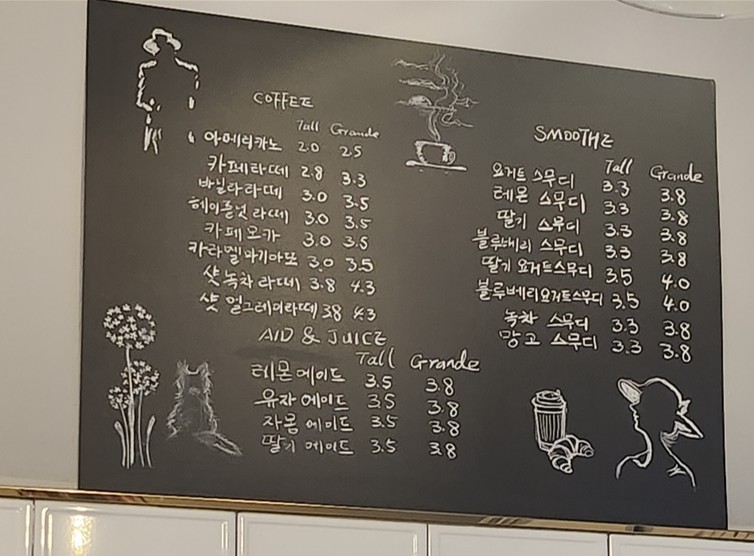 COFFEE
Tall Grande
아메리카노 2.0 2.5
카페라떼 2.8 3.3
바닐라라떼 3.0 3.5
헤이즐넛 라떼 3.0 3.5
카페모카 3.0 3.5
카라멜마끼아또 3.0 3.5
샷 녹차 라떼 3.8 4.3
샷 얼그레이라떼 3.8 4.3
AID & JUICE
Tall Grande
레몬에이드 3.5 3.8
유자에이드 3.5 3.8
자몽 에이드 3.5 3.8
딸기 에이드 3.5 3.8
SMOOTHE
Tall Grande
요거트 스무디 3.3 3.8
레몬 스무디 3.3 3.8
딸기 스무디 3.3 3.8
블루베리 스무디 3.3 3.8
딸기 요거트스무디 3.5 4.0
블루베리요거트스무디 3.5 4.0
녹차 스무디 3.3 3.8
망고 스무디 3.3 3.8